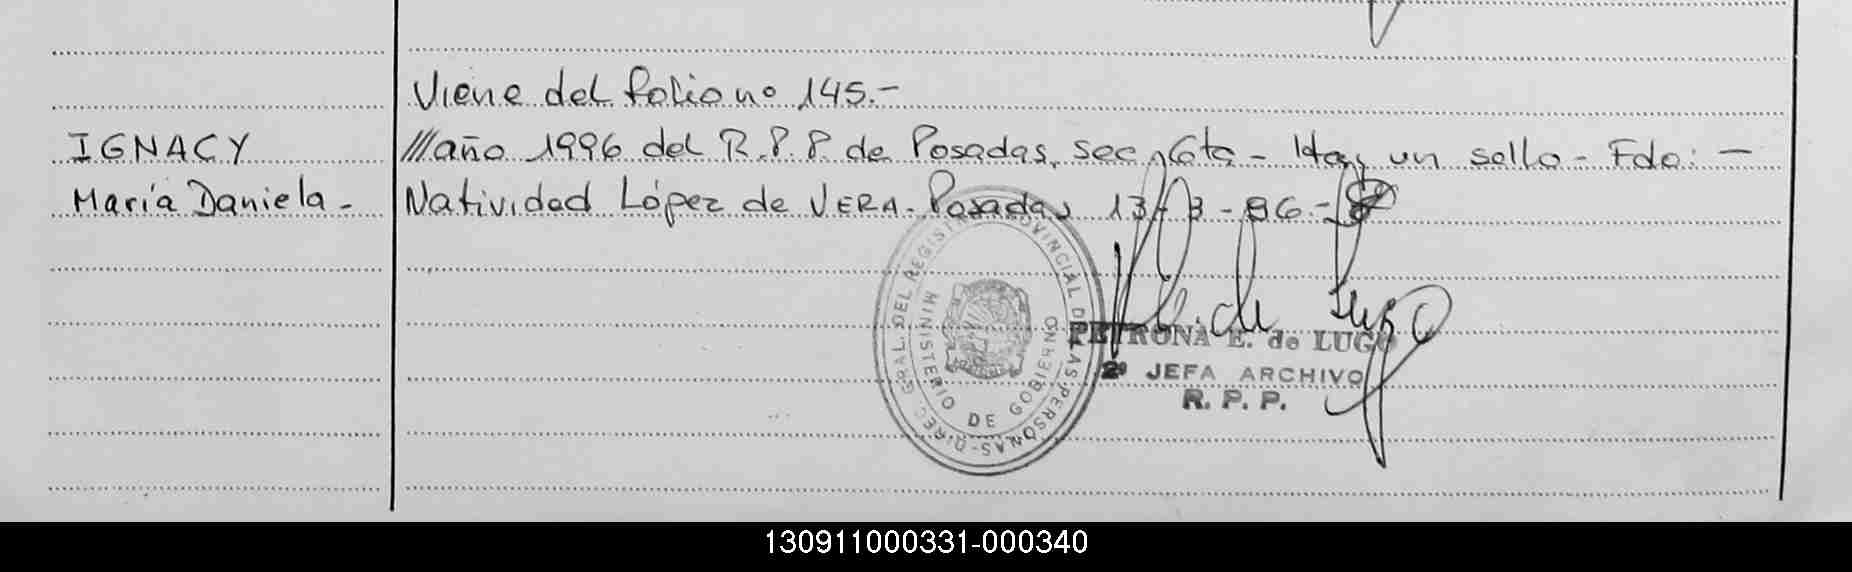 Viene del folio nº 145.-
IGNACY
María Daniela.-
///año 1996 del R.P.P. de Posadas, sec 6ta - Hay un sello - Fdo: -
Natividad López de VERA. Posadas 13- 3 - 96.-
DIREC. GRAL. DEL REGISTRO PROVINCIAL DE LAS PERSONAS-
MINISTERIO DE GOBIERNO
PETRONA E. de LUGO
2º JEFA ARCHIVO
R. P. P.
130911000331-000340